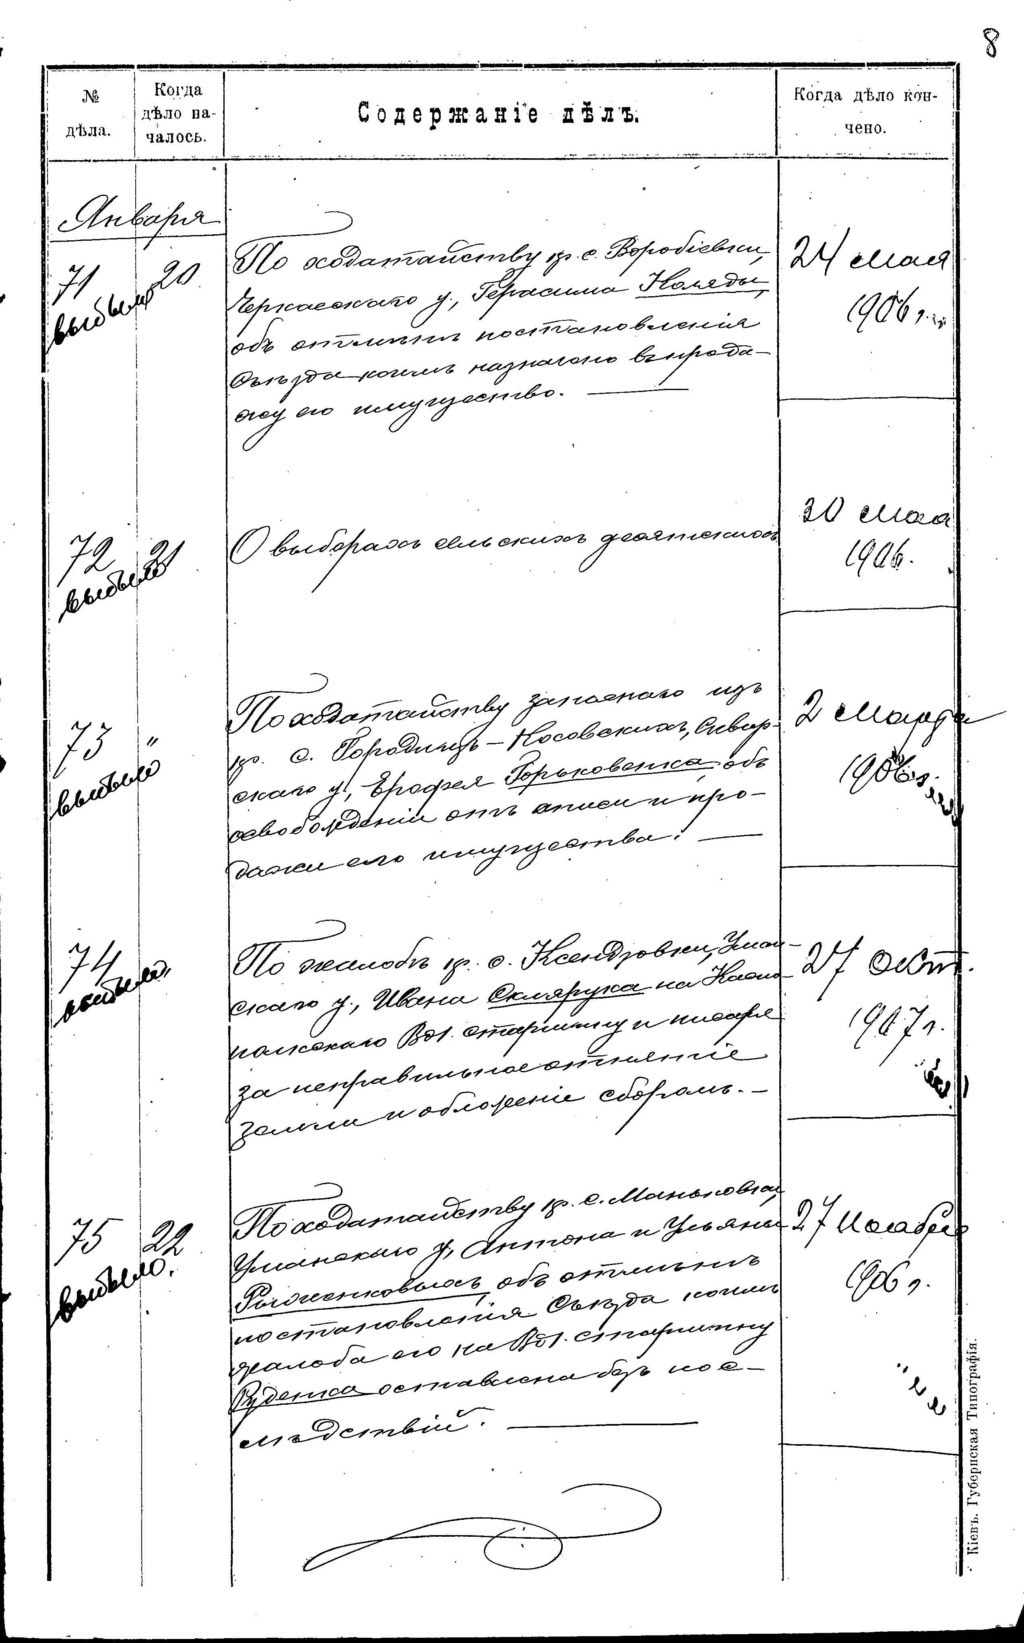 8
№ дѣла.
Когда дѣло началось.
Содержаніе дѣлъ.
Когда дѣло кончено.
Января
71
выбыло
20
По ходатайству кр. с. Воробіевки,
Черкасскаго у., Герасима Коляды,
объ отмѣнѣ постановленія
Съѣзда коимъ назначено въ прода-
жу его имущество.
24 Мая
1906 г.
72
выбыло
21
О выборахъ сельскихъ десятскихъ
30 Мая
1906.
73
выбыло
"
По ходатайству запаснаго изъ
кр. с. Городищъ-Косовскихъ, Сквир-
скаго у., Ерофея Горьковенка объ
освобожденіи отъ описи и про-
дажи его имущества.
2 Марта
1906 г.
74
выбыло
По жалобѣ кр. с. Ксендзовки, Уман-
скаго у., Ивана Склярука на
Вол. старшину и писаря
за неправильное отнятіе
земли и обложеніе сборомъ.
27 Окт.
1907 г.
75
выбыло.
22
По ходатайству кр. с. Маньковки,
Уманскаго у., Антона и Ульяны
объ отмѣнѣ
постановленія Съѣзда коимъ
жалоба его на Вол. старшину
Руденка оставлена безъ пос-
лѣдствій.
27 Ноября
1906 г.
Кіевъ. Губернская Типографія.